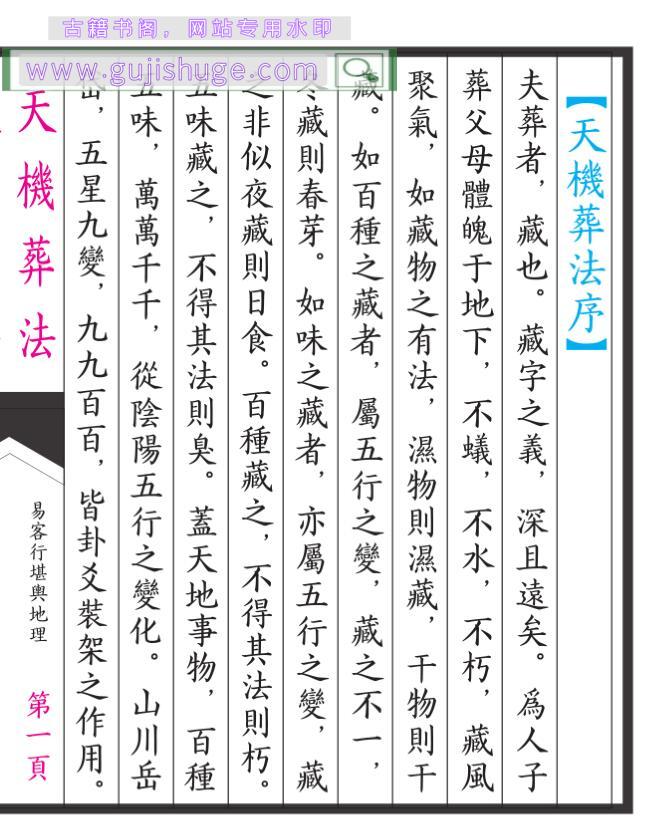 古籍书阁，网站专用水印
www.gujishuge.com
【天機葬法序】
夫葬者，藏也。藏字之義，深且遠矣。爲人子
葬父母體魄于地下，不蟻，不水，不朽，藏風
聚氣，如藏物之有法，濕物則濕藏，干物則干
藏。如百種之藏者，屬五行之變，藏之不一，
冬藏則春芽。如味之藏者，亦屬五行之變，藏
之非似夜藏則日食。百種藏之，不得其法則朽。
五味藏之，不得其法則臭。蓋天地事物，百種
五味，萬萬千千，從陰陽五行之變化。山川岳
，五星九變，九九百百，皆卦爻裝架之作用。
天機葬法
易客行堪輿地理
第一頁